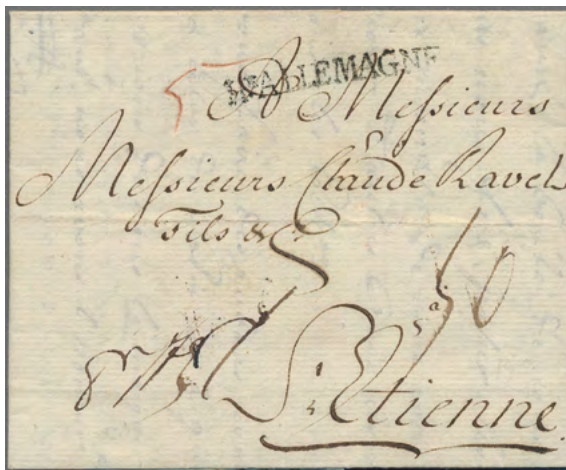 D'ALLEMAGNE
A Messieurs
Messieurs Claude Ravel
Fils & C.
St. Etienne